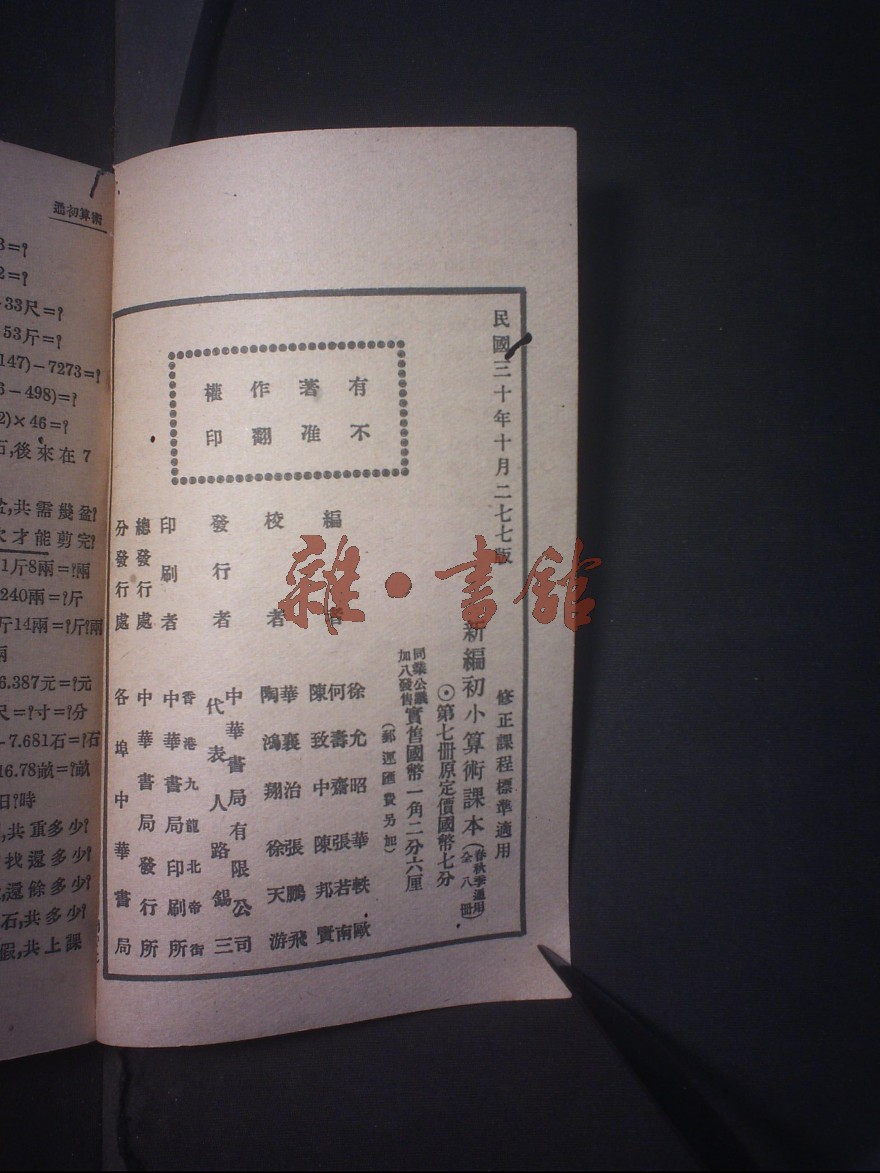 民國三十年十月二七七版
修正課程標準適用
新編初小算術課本（春秋季適用 全八冊）
◉第七冊原定價國幣七分
同業公議加八發售實售國幣一角二分六厘
（郵運匯費另加）
有著作權
不准翻印
編者
徐允昭 華軼歐
何壽齋 張若南
陳致中 陳邦賢
校者
華襄治 張鵬飛
陶鴻翔 徐天游
發行者
中華書局有限公司
代表人路錫三
印刷者
香港九龍北帝街
中華書局印刷所
總發行處
中華書局發行所
分發行處
各埠中華書局
初算術
3=?
2=?
33尺=?
53斤=?
147)-7273=?
6-498)=?
2)×46=?
後來在7
共需幾盆?
才能剪完?
1斤8兩=?兩
240兩=?斤
斤14兩=?斤?兩
兩
6.387元=?元
尺=?寸=?分
-7.681石=?石
16.78畝=?畝
日?時
共重多少?
找還多少?
還餘多少?
石,共多少?
假,共上課
雜·書館